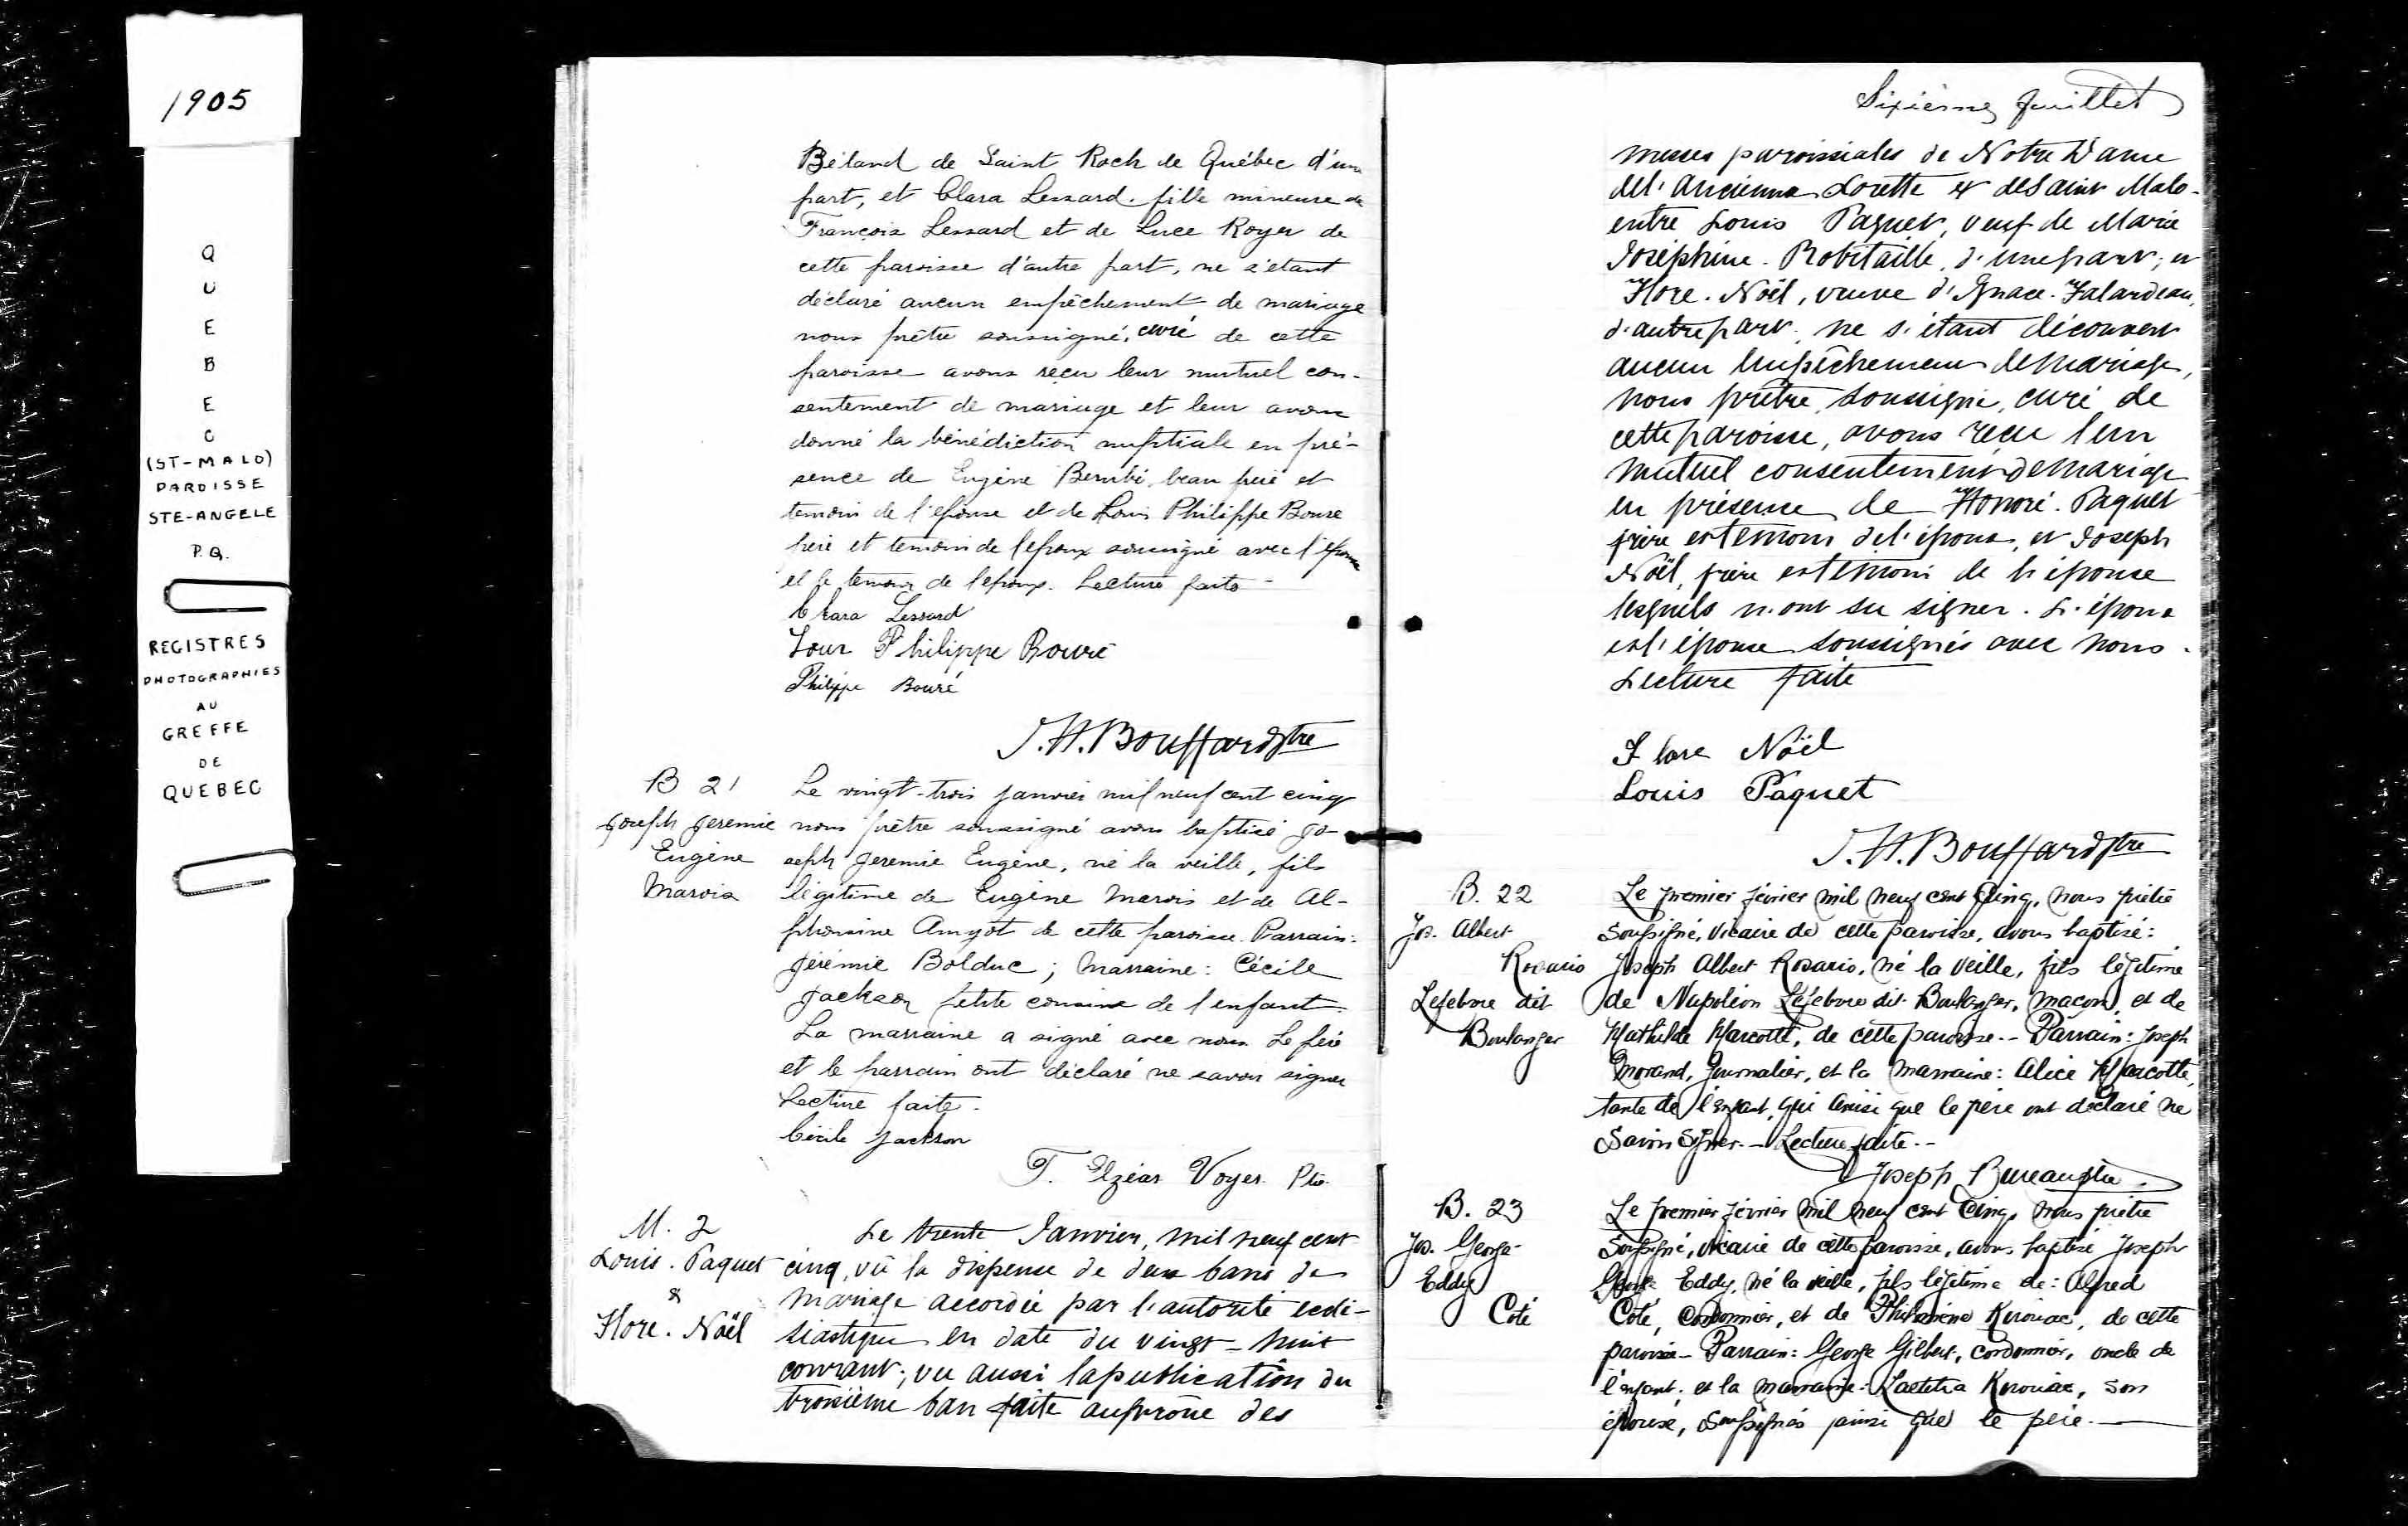 1905
Q
U
E
B
E
C
(ST-MALO)
PAROISSE
STE-ANGELE
P.Q.
REGISTRES
PHOTOGRAPHIES
AU
GREFFE
DE
QUEBEC
Béland de Saint Roch de Québec d'une
part, et Clara Lessard fille mineure de
François Lessard et de Luce Royer de
cette paroisse d'autre part, ne s'étant
déclaré aucun empêchement de mariage
nous prêtre soussigné, curé de cette
paroisse avons reçu leur mutuel con-
sentement de mariage et leur avons
donné la bénédiction nuptiale en pré-
sence de Eugène Bérubé, beau frère et
temoin de l'épouse et de Louis Philippe Boure
père et temoin de l'epoux soussigné avec l'épouse
et le temoin de l'epoux. Lecture faite -
Clara Lessard
Louis Philippe Bouré
Philippe Bouré
J. H. Bouffard Ptre
B 21
Joseph Jeremie
Eugène
Marois
Le vingt-trois janvier mil neuf cent cinq
nous prêtre soussigné avons baptisé Jo-
seph Jeremie Eugène, né la veille, fils
légitime de Eugène Marois et de Al-
phonsine Amyot de cette paroisse. Parrain:
Jérémie Bolduc; Marraine: Cécile
Jackson petite cousine de l'enfant.
La marraine a signé avec nous. Le père
et le parrain ont déclaré ne savoir signer
Lecture faite.
Cécile Jackson
T. Elzéar Voyer Ptre
M. 2
Louis. Paquet
&
Flore. Noël
Le trente Janvier, mil neuf cent
cinq, vû la dispense de deux bans de
mariage accordée par l'autorité ecclé-
siastique en date du vingt-huit
courant; vu aussi la publication du
troisième ban faite au prône des
Sixième feuillet
messes paroissiales de Notre Dame
de l'Ancienne Lorette et de Saint Malo -
entre Louis Paquet, veuf de Marie
Joséphine Robitaille, d'une part; et
Flore. Noël, veuve d'Ignace. Falardeau,
d'autre part, ne s'étant découvert
aucun empêchement de mariage,
nous prêtre soussigné, curé de
cette paroisse, avons reçu leur
mutuel consentement de mariage
en présence de Honoré. Paquet
frère et temoin de l'époux, et Joseph
Noël, frère et temoin de l'épouse
lesquels n'ont su signer. L'époux
et l'épouse soussignés avec nous.
Lecture faite
Flore Noël
Louis Paquet
J. H. Bouffard ptre
B. 22
Jos. Albert
Rosario
Lefebvre dit
Boulanger
Le premier février mil neuf cent cinq, nous prêtre
soussigné, vicaire de cette paroisse, avons baptisé:
Joseph Albert Rosario, né la veille, fils légitime
de Napoléon Lefebvre dit Boulanger, maçon, et de
Mathilde Marcotte, de cette paroisse. - Parrain: Joseph
Morand, Journalier, et la marraine: Alice Marcotte,
tante de l'enfant, qui ainsi que le père ont déclaré ne
savoir signer. - Lecture faite. -
Joseph Bureau ptre
B. 23
Jos. George
Eddy
Coté
Le premier février mil neuf cent cinq, nous prêtre
soussigné, vicaire de cette paroisse, avons baptisé Joseph
George Eddy, né la veille, fils légitime de: Alfred
Coté, Cordonnier, et de Philomène Kirouac, de cette
paroisse - Parrain: George Gilbert, cordonnier, oncle de
l'enfant, et la marraine: Laetitia Kirouac, son
épouse, soussignés ainsi que le père. -